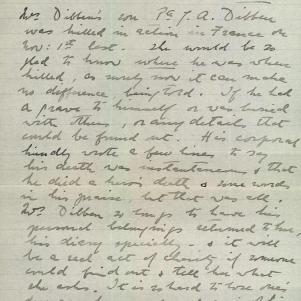 Mrs Dibben's son Pte J. A. Dibben
was killed in action in France on
Nov: 1st last. She would be so
glad to know where he was when
killed, as surely now it can make
no difference being told. If he had
a grave to himself or was buried
with others, or any details that
could be found out. His corporal
kindly wrote a few lines to say
his death was instantaneous & that
he died a hero's death & some words
in his praise but that was all.
Mrs. Dibben so longs to have his
personal belongings returned to her,
his diary specially - & it will
be a real act of charity if someone
could find out & tell her what
she asks. It is so hard to lose one's